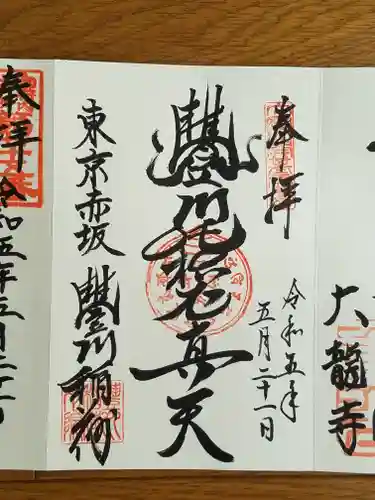 奉拝
令和五年
五月二十一日
豐川吒枳尼真天
東京赤坂
豐川稲荷
奉拝
令和五年五月二十一日
大龍寺